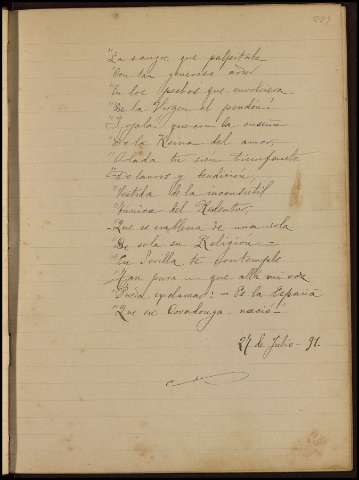 "La sangre que palpitab
"Con tan generoso ardor
"En los pechos que envolviera
"De la Virgen el pendón!
"Y ojalá que con la enseña
"De la Reina del amor,
"Alada tu sien
"De lauros y bendición,
"Vestida de la inconsútil
"Túnica del Redentor,
"Que es emblema de una sola
"De sola su Religión –
"En Sevilla te contemple
"Tan pura – que allá mi voz
"Pueda exclamar: – Es la España
"Que en Covadonga nació!
27 de Julio – 91.